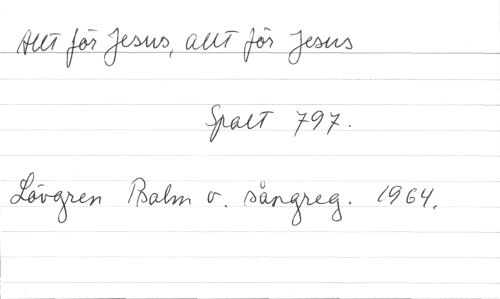 Allt för Jesus, allt för Jesus
Spalt 797.
Lövgren Psalm o. sångreg. 1964.